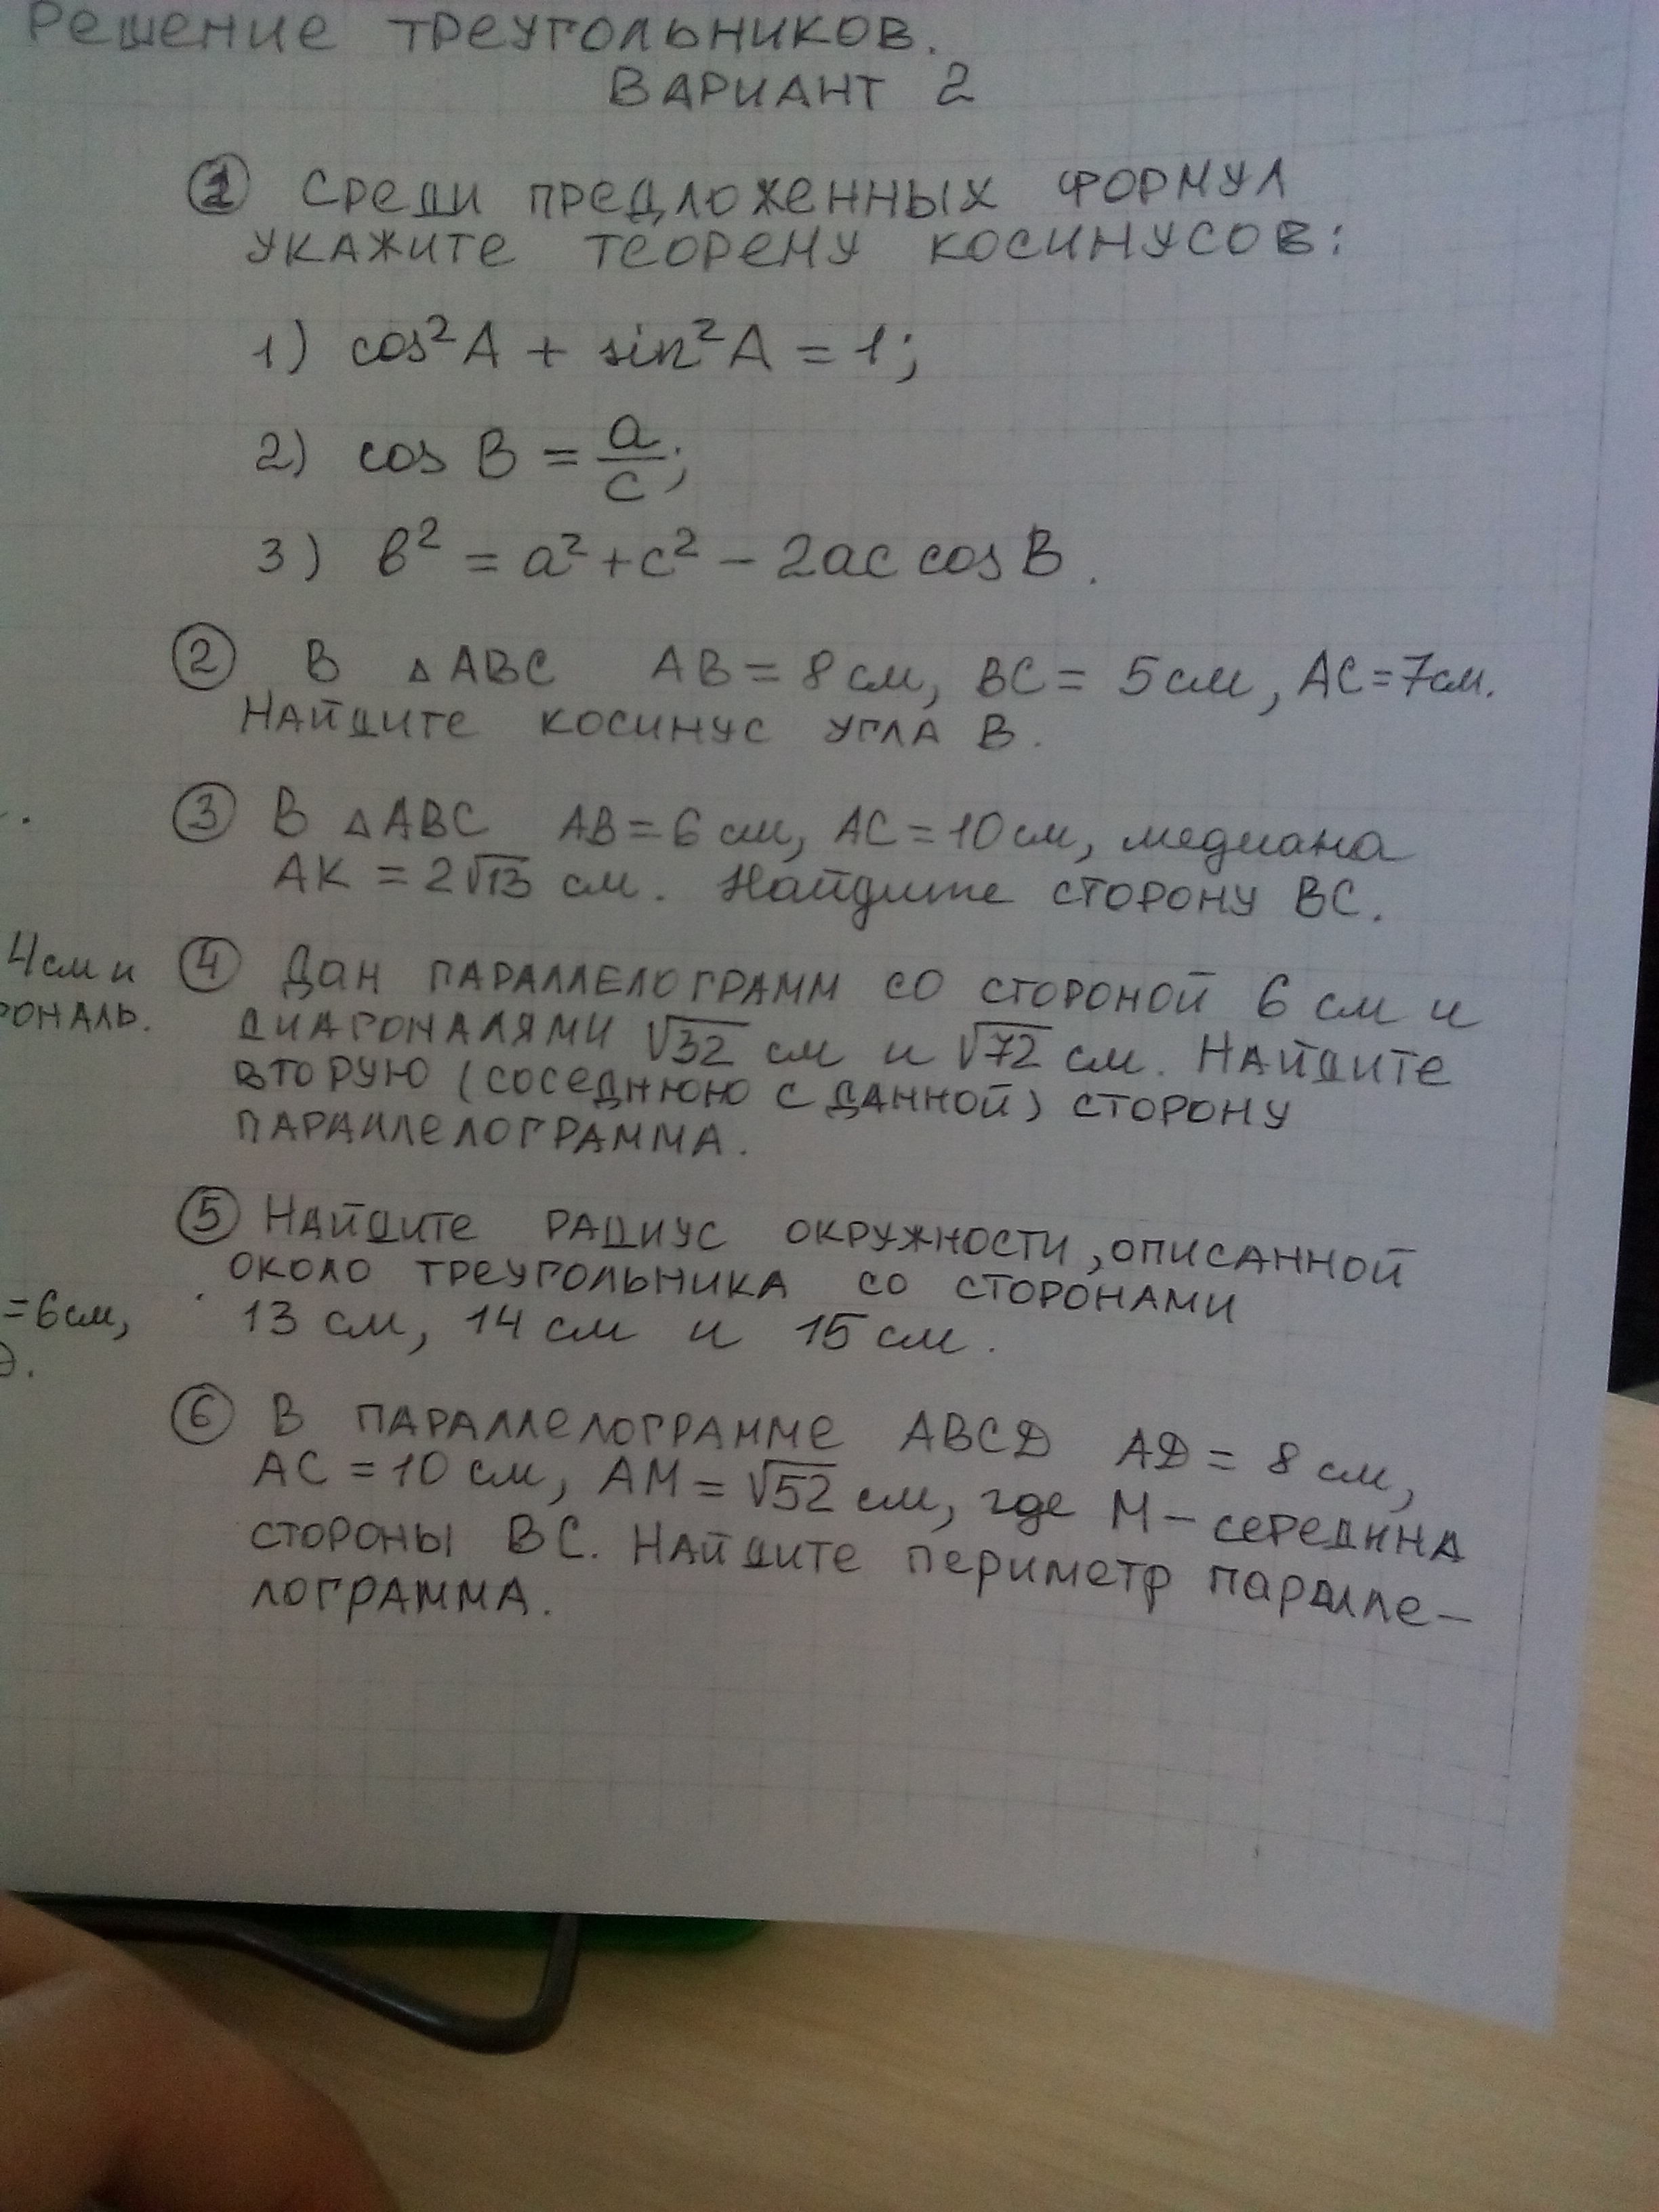 Решение треугольников.
Вариант 2
① Среди предложенных формул
укажите теорему косинусов:
1) cos²A + sin²A = 1;
2) cos B = a/c;
3) b² = a² + c² - 2ac cos B.
② В △ABC AB = 8 см, BC = 5 см, AC = 7 см.
Найдите косинус угла B.
③ В △ABC AB = 6 см, AC = 10 см, медиана
AK = 2√13 см. Найдите сторону BC.
④ Дан параллелограмм со стороной 6 см и
диагоналями √32 см и √72 см. Найдите
вторую (соседнюю с данной) сторону
параллелограмма.
⑤ Найдите радиус окружности, описанной
около треугольника со сторонами
13 см, 14 см и 15 см.
⑥ В параллелограмме ABCD AD = 8 см,
AC = 10 см, AM = √52 см, где M - середина
стороны BC. Найдите периметр паралле-
лограмма.
4 см и
ональ.
= 6 см,